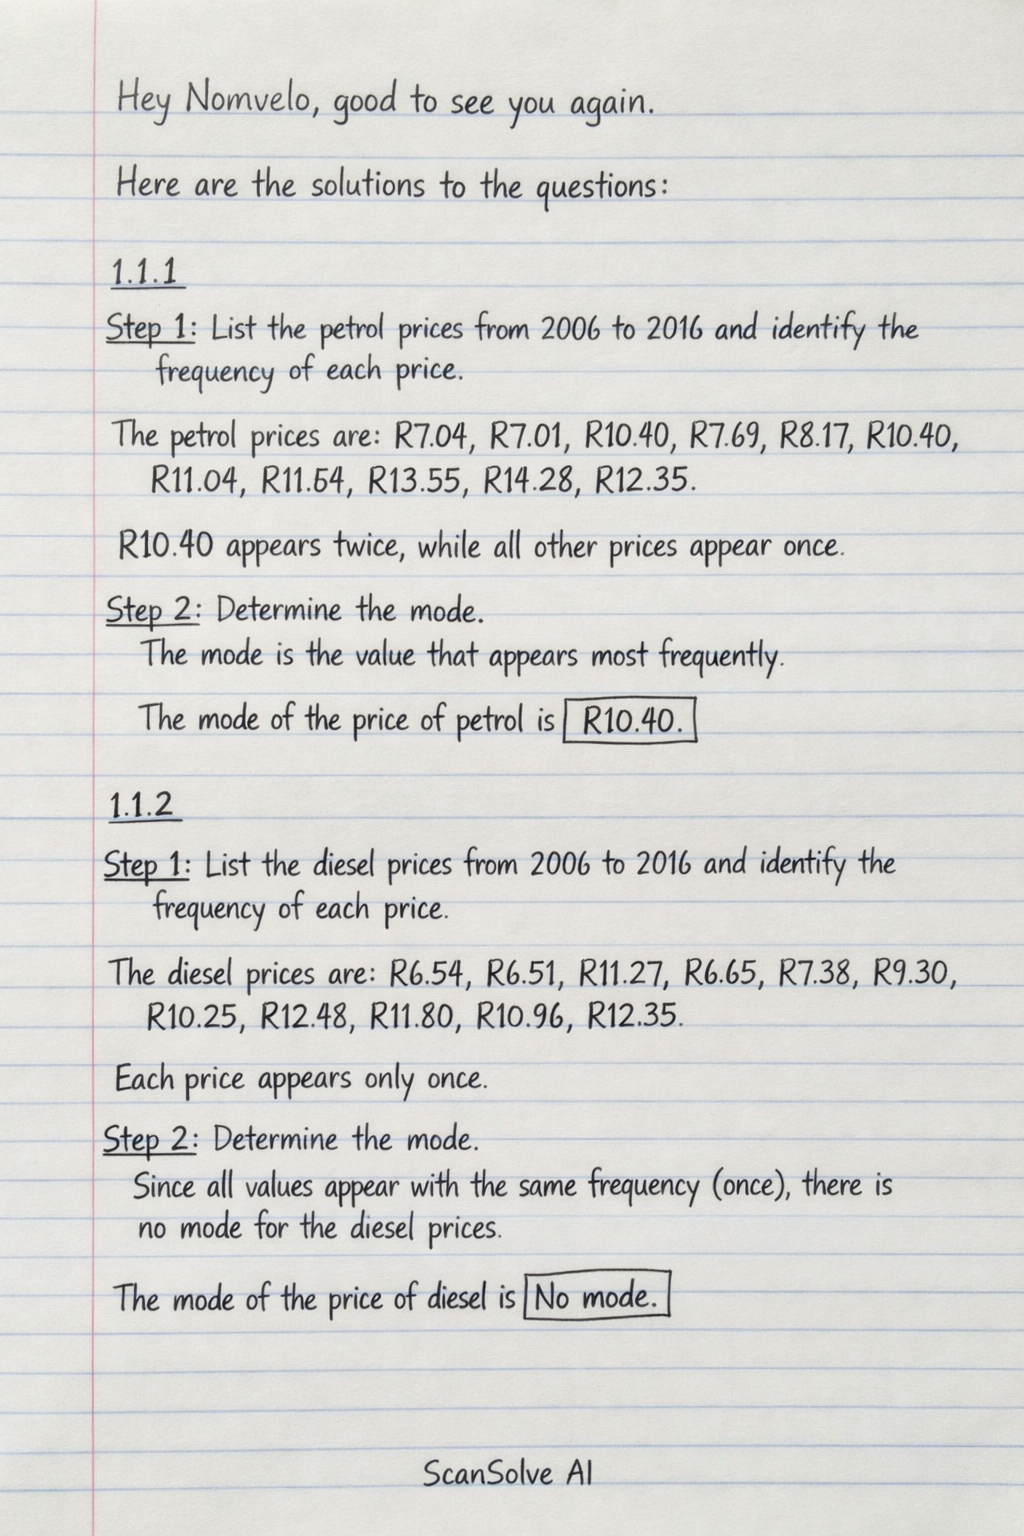 Hey Nomvelo, good to see you again.
Here are the solutions to the questions:
1.1.1
Step 1: List the petrol prices from 2006 to 2016 and identify the
frequency of each price.
The petrol prices are: R7.04, R7.01, R10.40, R7.69, R8.17, R10.40,
R11.04, R11.64, R13.55, R14.28, R12.35.
R10.40 appears twice, while all other prices appear once.
Step 2: Determine the mode.
The mode is the value that appears most frequently.
The mode of the price of petrol is R10.40.
1.1.2
Step 1: List the diesel prices from 2006 to 2016 and identify the
frequency of each price.
The diesel prices are: R6.54, R6.51, R11.27, R6.65, R7.38, R9.30,
R10.25, R12.48, R11.80, R10.96, R12.35.
Each price appears only once.
Step 2: Determine the mode.
Since all values appear with the same frequency (once), there is
no mode for the diesel prices.
The mode of the price of diesel is No mode.
ScanSolve AI